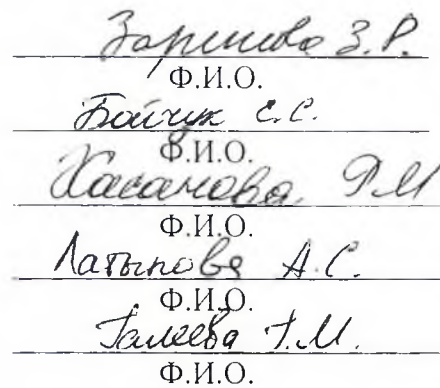 Зарипова З.Р.
Ф.И.О.
Бойчук С.С.
Ф.И.О.
Хасанова Р.М
Ф.И.О.
Латыпова А.С.
Ф.И.О.
Галеева Г.М.
Ф.И.О.